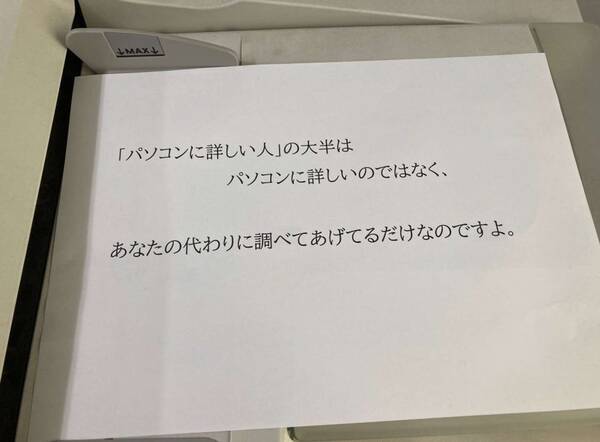 ↓MAX↓
「パソコンに詳しい人」の大半は
パソコンに詳しいのではなく、
あなたの代わりに調べてあげてるだけなのですよ。